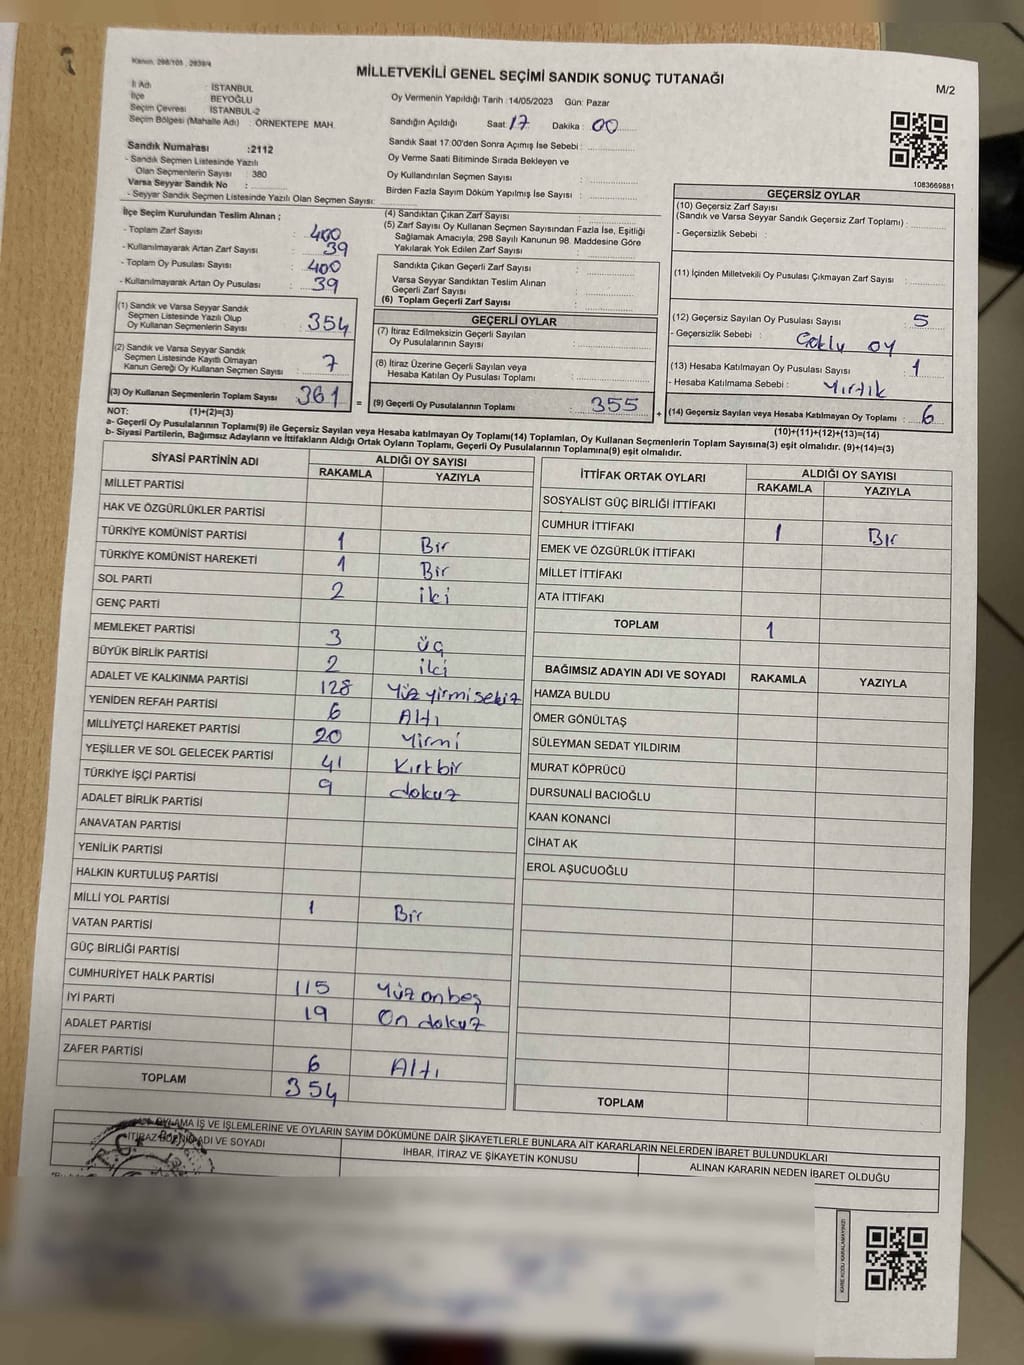 Kanun, 298/105 , 2839/4
MİLLETVEKİLİ GENEL SEÇİMİ SANDIK SONUÇ TUTANAĞI
M/2
İl Adı : İSTANBUL
İlçe : BEYOĞLU
Seçim Çevresi : İSTANBUL-2
Seçim Bölgesi (Mahalle Adı) : ÖRNEKTEPE MAH.
Oy Vermenin Yapıldığı Tarih : 14/05/2023 Gün: Pazar
Sandığın Açıldığı Saat: 17 Dakika : 00
Sandık Saat 17.00'den Sonra Açımış İse Sebebi :
Oy Verme Saati Bitiminde Sırada Bekleyen ve
Oy Kullandırılan Seçmen Sayısı :
Birden Fazla Sayım Döküm Yapılmış İse Sayısı :
Sandık Numarası :2112
- Sandık Seçmen Listesinde Yazılı
Olan Seçmenlerin Sayısı : 380
Varsa Seyyar Sandık No :
- Seyyar Sandık Seçmen Listesinde Yazılı Olan Seçmen Sayısı:
1083669881
İlçe Seçim Kurulundan Teslim Alınan ;
- Toplam Zarf Sayısı : 400
- Kullanılmayarak Artan Zarf Sayısı : 39
- Toplam Oy Pusulası Sayısı : 400
- Kullanılmayarak Artan Oy Pusulası : 39
(1) Sandık ve Varsa Seyyar Sandık
Seçmen Listesinde Yazılı Olup
Oy Kullanan Seçmenlerin Sayısı : 354
(2) Sandık ve Varsa Seyyar Sandık
Seçmen Listesinde Kayıtlı Olmayan
Kanun Gereği Oy Kullanan Seçmen Sayısı : 7
(3) Oy Kullanan Seçmenlerin Toplam Sayısı 361 =
(4) Sandıktan Çıkan Zarf Sayısı :
(5) Zarf Sayısı Oy Kullanan Seçmen Sayısından Fazla İse, Eşitliği
Sağlamak Amacıyla; 298 Sayılı Kanunun 98. Maddesine Göre
Yakılarak Yok Edilen Zarf Sayısı :
Sandıkta Çıkan Geçerli Zarf Sayısı :
Varsa Seyyar Sandıktan Teslim Alınan
Geçerli Zarf Sayısı :
(6) Toplam Geçerli Zarf Sayısı :
GEÇERLİ OYLAR
(7) İtiraz Edilmeksizin Geçerli Sayılan
Oy Pusulalarının Sayısı :
(8) İtiraz Üzerine Geçerli Sayılan veya
Hesaba Katılan Oy Pusulası Toplamı :
(9) Geçerli Oy Pusulalarının Toplamı : 355 +
GEÇERSİZ OYLAR
(10) Geçersiz Zarf Sayısı
(Sandık ve Varsa Seyyar Sandık Geçersiz Zarf Toplamı) :
- Geçersizlik Sebebi :
(11) İçinden Milletvekili Oy Pusulası Çıkmayan Zarf Sayısı :
(12) Geçersiz Sayılan Oy Pusulası Sayısı : 5
- Geçersizlik Sebebi : Çoklu oy
(13) Hesaba Katılmayan Oy Pusulası Sayısı : 1
- Hesaba Katılmama Sebebi : Yırtık
(14) Geçersiz Sayılan veya Hesaba Katılmayan Oy Toplamı : 6
NOT: (1)+(2)=(3)
(10)+(11)+(12)+(13)=(14)
a- Geçerli Oy Pusulaları Toplamı(9) ile Geçersiz Sayılan veya Hesaba katılmayan Oy Toplamı(14) Toplamları, Oy Kullanan Seçmenlerin Toplam Sayısına(3) eşit olmalıdır. (9)+(14)=(3)
b- Siyasi Partilerin, Bağımsız Adayların ve İttifakların Aldığı Ortak Oyların Toplamı, Geçerli Oy Pusulalarının Toplamına(9) eşit olmalıdır.
SİYASİ PARTİNİN ADI ALDIĞI OY SAYISI
RAKAMLA YAZIYLA
MİLLET PARTİSİ
HAK VE ÖZGÜRLÜKLER PARTİSİ
TÜRKİYE KOMÜNİST PARTİSİ 1 Bir
TÜRKİYE KOMÜNİST HAREKETİ 1 Bir
SOL PARTİ 2 iki
GENÇ PARTİ
MEMLEKET PARTİSİ 3 üç
BÜYÜK BİRLİK PARTİSİ 2 iki
ADALET VE KALKINMA PARTİSİ 128 Yüz yirmi sekiz
YENİDEN REFAH PARTİSİ 6 Altı
MİLLİYETÇİ HAREKET PARTİSİ 20 Yirmi
YEŞİLLER VE SOL GELECEK PARTİSİ 41 Kırk bir
TÜRKİYE İŞÇİ PARTİSİ 9 dokuz
ADALET BİRLİK PARTİSİ
ANAVATAN PARTİSİ
YENİLİK PARTİSİ
HALKIN KURTULUŞ PARTİSİ
MİLLİ YOL PARTİSİ 1 Bir
VATAN PARTİSİ
GÜÇ BİRLİĞİ PARTİSİ
CUMHURİYET HALK PARTİSİ 115 Yüz on beş
İYİ PARTİ 19 On dokuz
ADALET PARTİSİ
ZAFER PARTİSİ 6 Altı
TOPLAM 354
İTTİFAK ORTAK OYLARI ALDIĞI OY SAYISI
RAKAMLA YAZIYLA
SOSYALİST GÜÇ BİRLİĞİ İTTİFAKI
CUMHUR İTTİFAKI 1 Bir
EMEK VE ÖZGÜRLÜK İTTİFAKI
MİLLET İTTİFAKI
ATA İTTİFAKI
TOPLAM 1
BAĞIMSIZ ADAYIN ADI VE SOYADI RAKAMLA YAZIYLA
HAMZA BULDU
ÖMER GÖNÜLTAŞ
SÜLEYMAN SEDAT YILDIRIM
MURAT KÖPRÜCÜ
DURSUNALİ BACIOĞLU
KAAN KONANCİ
CİHAT AK
EROL AŞUCUOĞLU
TOPLAM
OYLAMA İŞ VE İŞLEMLERİNE VE OYLARIN SAYIM DÖKÜMÜNE DAİR ŞİKAYETLERLE BUNLARA AİT KARARLARIN NELERDEN İBARET BULUNDUKLARI
ADI VE SOYADI İHBAR, İTİRAZ VE ŞİKAYETİN KONUSU ALINAN KARARIN NEDEN İBARET OLDUĞU
T.C.
KAREKODU KARALAMAYINIZ!